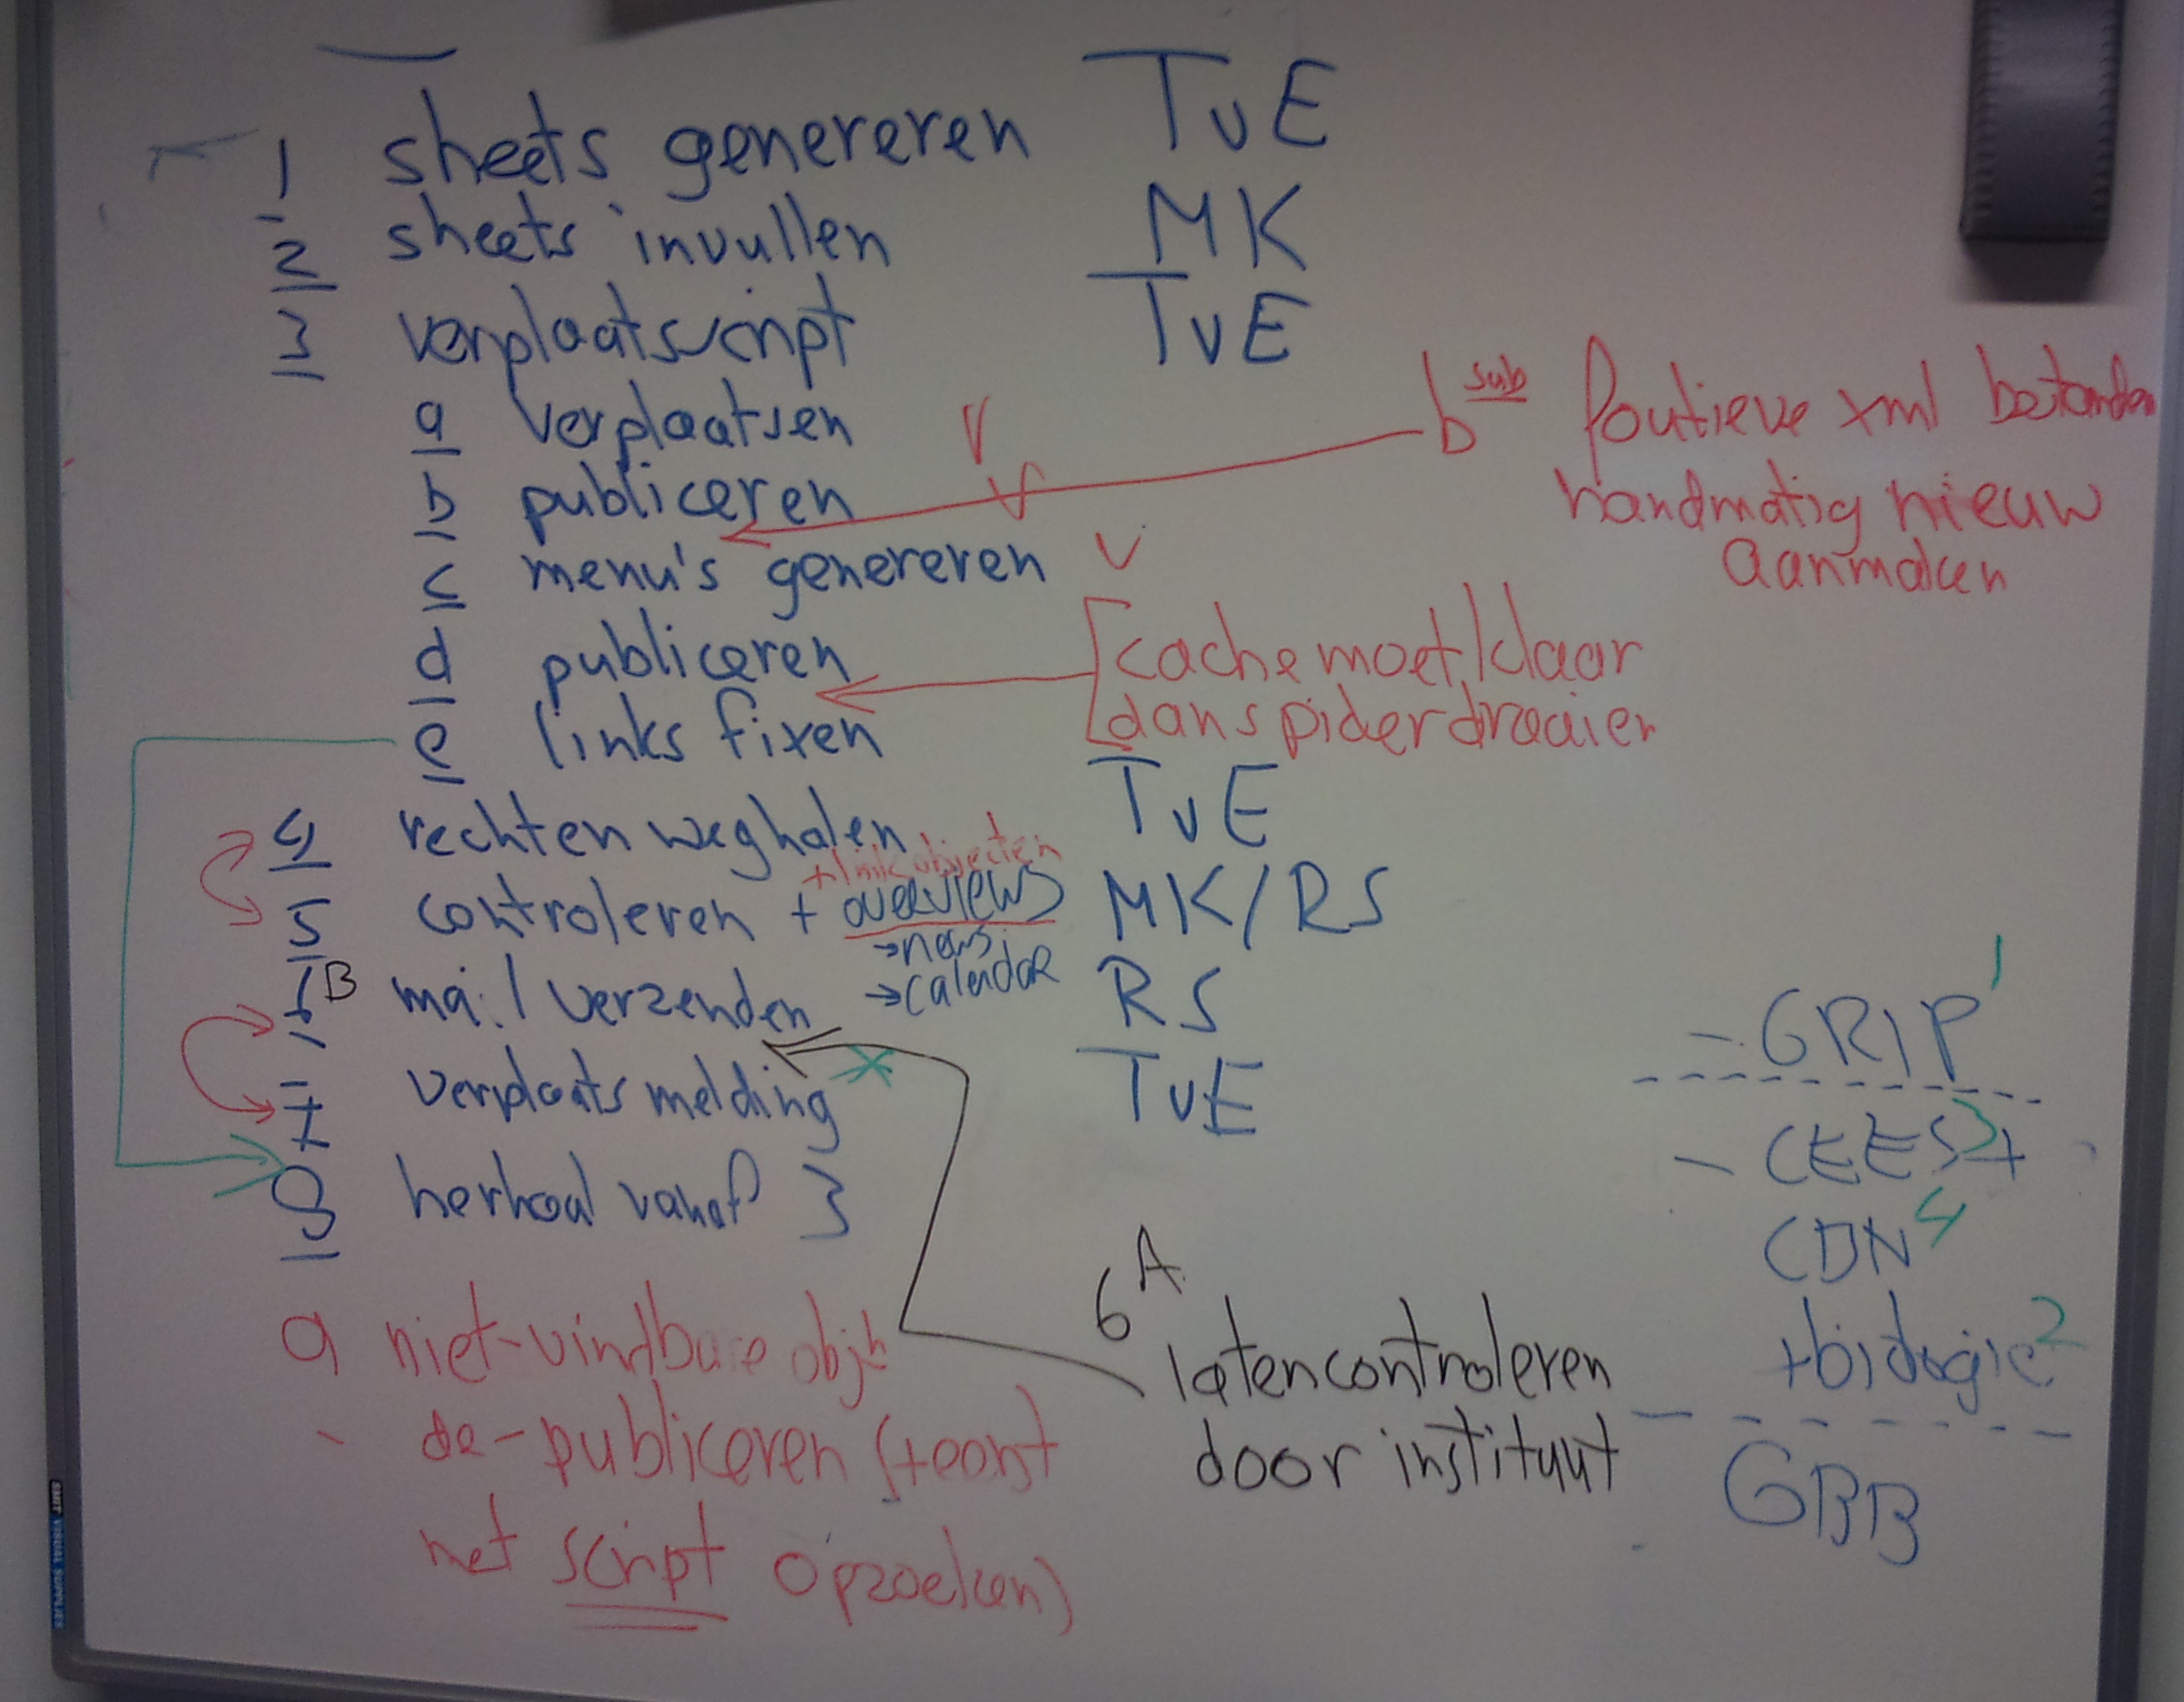 1 sheets genereren TvE
2 sheets invullen MK
3 verplaatsscript TvE
a verplaatsen V
b publiceren V
b sub foutieve xml bestanden
handmatig nieuw
aanmaken
c menu's genereren V
d publiceren
[cache moet klaar
dan spider draaien
e links fixen
4 rechten weghalen TvE
+ link objecten
5 controleren + overviews MK/RS
→news
→calendar
6B mail verzenden RS
7 verplaats melding TvE
8 herhaal vanaf 3
9 niet-vindbare objn
- de-publiceren (+eerst
met script opzoeken)
6A
laten controleren
door instituut
- GRIP 1
- CEES 3 +
CDN 4
+biologie 2
GBB
SMIT VISUAL SUPPLIES